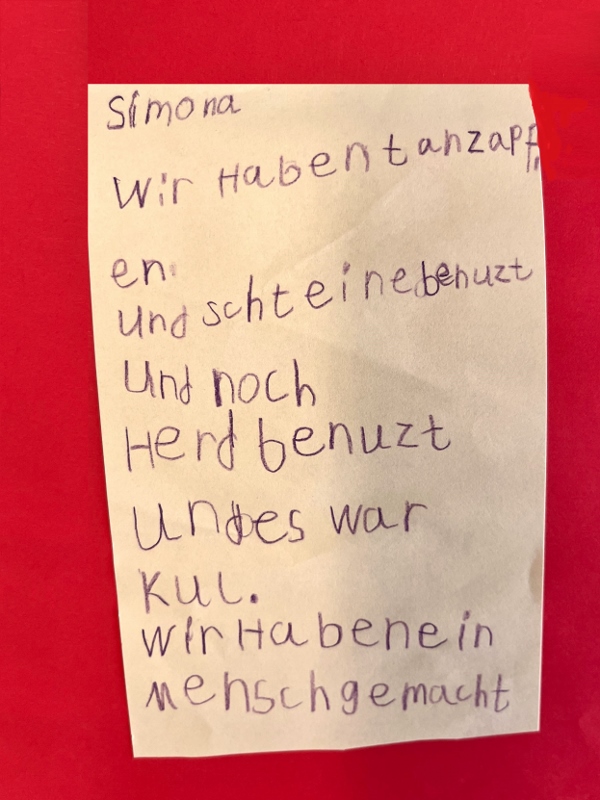 Simona
Wir Haben tanzapf
en.
und schteinebenuzt
Und noch
Herd benuzt
Undes war
Kul.
wir Habenein
Menschgemacht